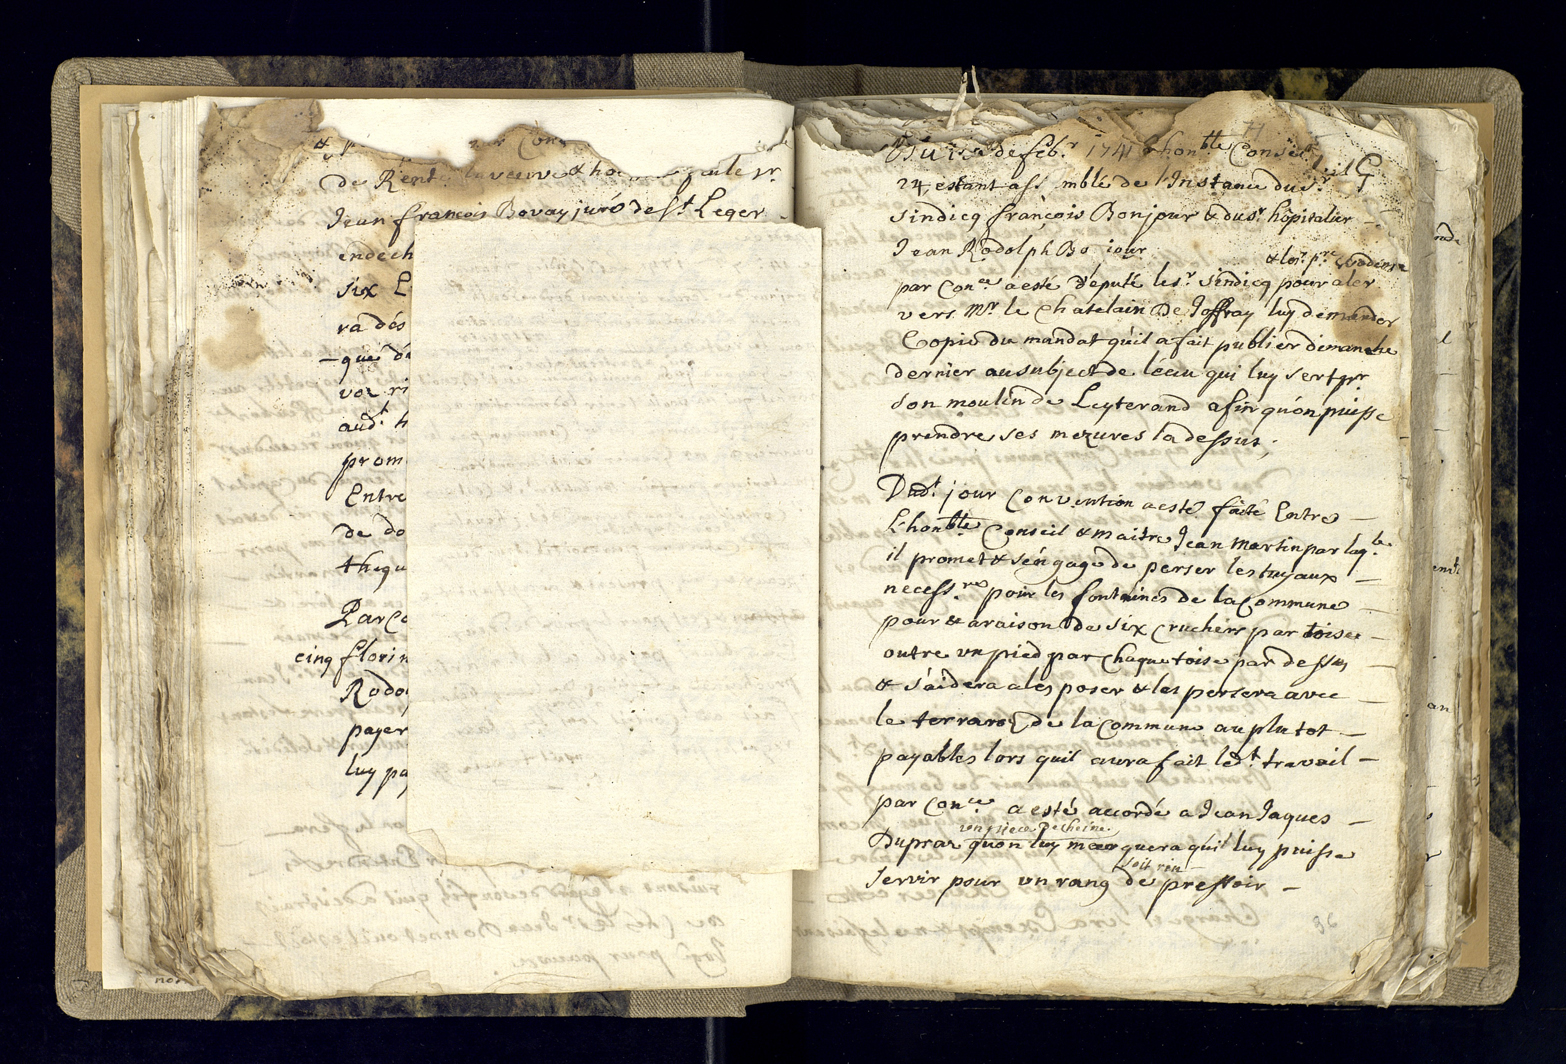 de Rente la veuve & ho
Jean francois Bovay juré de st Leger
endech
six
ra dés
que dé
voz ri
audt h
prom
Entre
de do
thequ
Parco
cinq florin
Rodo
payer
luy pa
de febr 1741 L'honble Conseil
24 estant assemblé de l'Instance du sr
sindicq françois Bonjour & du sr hopitalier
Jean Rodolph Bo jour
par Conce a esté député le sr sindicq pour aler
vers mr le Chatelain De Joffray luy demander
Copie du mandat qu'il a fait publier dimanche
dernier au subject de l'eau qui luy sert pr
son moulin de Leyterand afin qu'on puisse
prendre ses mezures la dessus;
Dudt jour Convention a esté faite Entre
L'honble Conseil & maitre Jean Martin par laqle
il promet & s'engage de perser les tuyaux
necessres pour les fontaines de la Commune
pour & a raison de six cruchers par toise
outre un pied par Chaque toise par dessus
& s'aidera a les poser & les persera avec
le terraroz de la Commune au plutot
payables lors quil aura fait ledt travail
par Conce a esté accordé a Jean Jaques
une piece De cheine
Dupraz quon luy marquera qu'il luy puisse
soit rin
servir pour un rang de pressoir
86